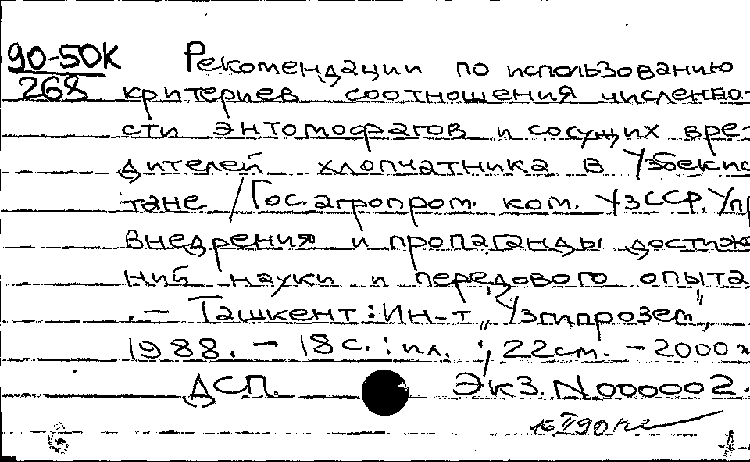 90-50К Рекомендации по использованию
268 критериев соотношения численно-
сти энтомофагов и сосущих вре-
дителей хлопчатника в Узбекис
тане / Гос. агропром. ком. УзССР, Упр
внедрения и пропаганды достиж
ний науки и передового опыта
.- Ташкент: Ин-т „Узгипрозем",
1988. - 18 с. : ил. ; 22 см. - 2000 э
ДСП. Экз. N000002.